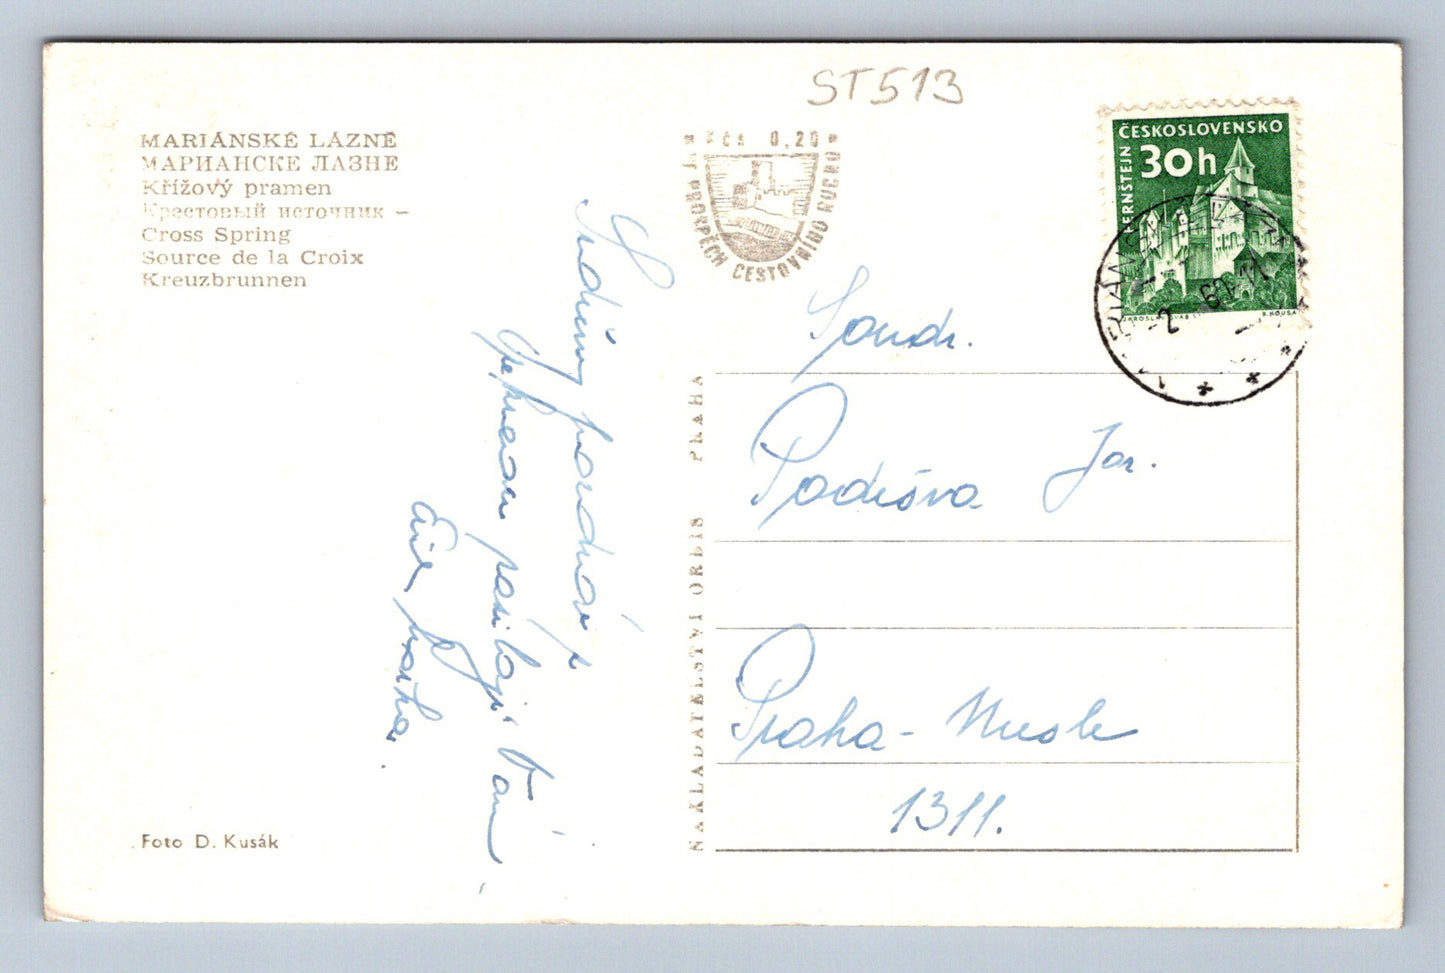 ST513
MARIÁNSKÉ LÁZNĚ
МАРИАНСКЕ ЛАЗНЕ
Křížový pramen
Крестовый источник –
Cross Spring
Source de la Croix
Kreuzbrunnen
Kčs 0,20
PROSPĚCH CESTOVNÍHO RUCHU
ČESKOSLOVENSKO
30h
ERNŠTEJN
JAROSLAV
B. HOUSA
2
60
Srdečný pozdrav
posílají Vám
NAKLADATELSTVÍ ORBIS PRAHA
Soudr.
Podešva Jar.
Praha - Nusle
1311.
Foto D. Kusák